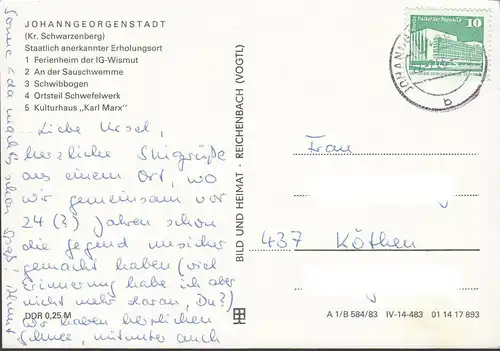 JOHANNGEORGENSTADT
(Kr. Schwarzenberg)
Staatlich anerkannter Erholungsort
1 Ferienheim der IG-Wismut
2 An der Sauschwemme
3 Schwibbogen
4 Ortsteil Schwefelwerk
5 Kulturhaus „Karl Marx"
Liebe Ursel,
herzliche Skigrüße
aus einem Ort, wo
wir gemeinsam vor
24 (?) Jahren schon
die Gegend unsicher
gemacht haben (viel
Erinnerung habe ich aber
nicht mehr daran, Du?)
Wir haben herrlichen
Schnee, mitunter auch
Sonne – da macht's schon Spaß!
DDR 0,25 M
BILD UND HEIMAT · REICHENBACH (VOGTL)
10
JOHANN
b
Frau
437 Köthen
A 1/B 584/83 IV-14-483 01 14 17 893